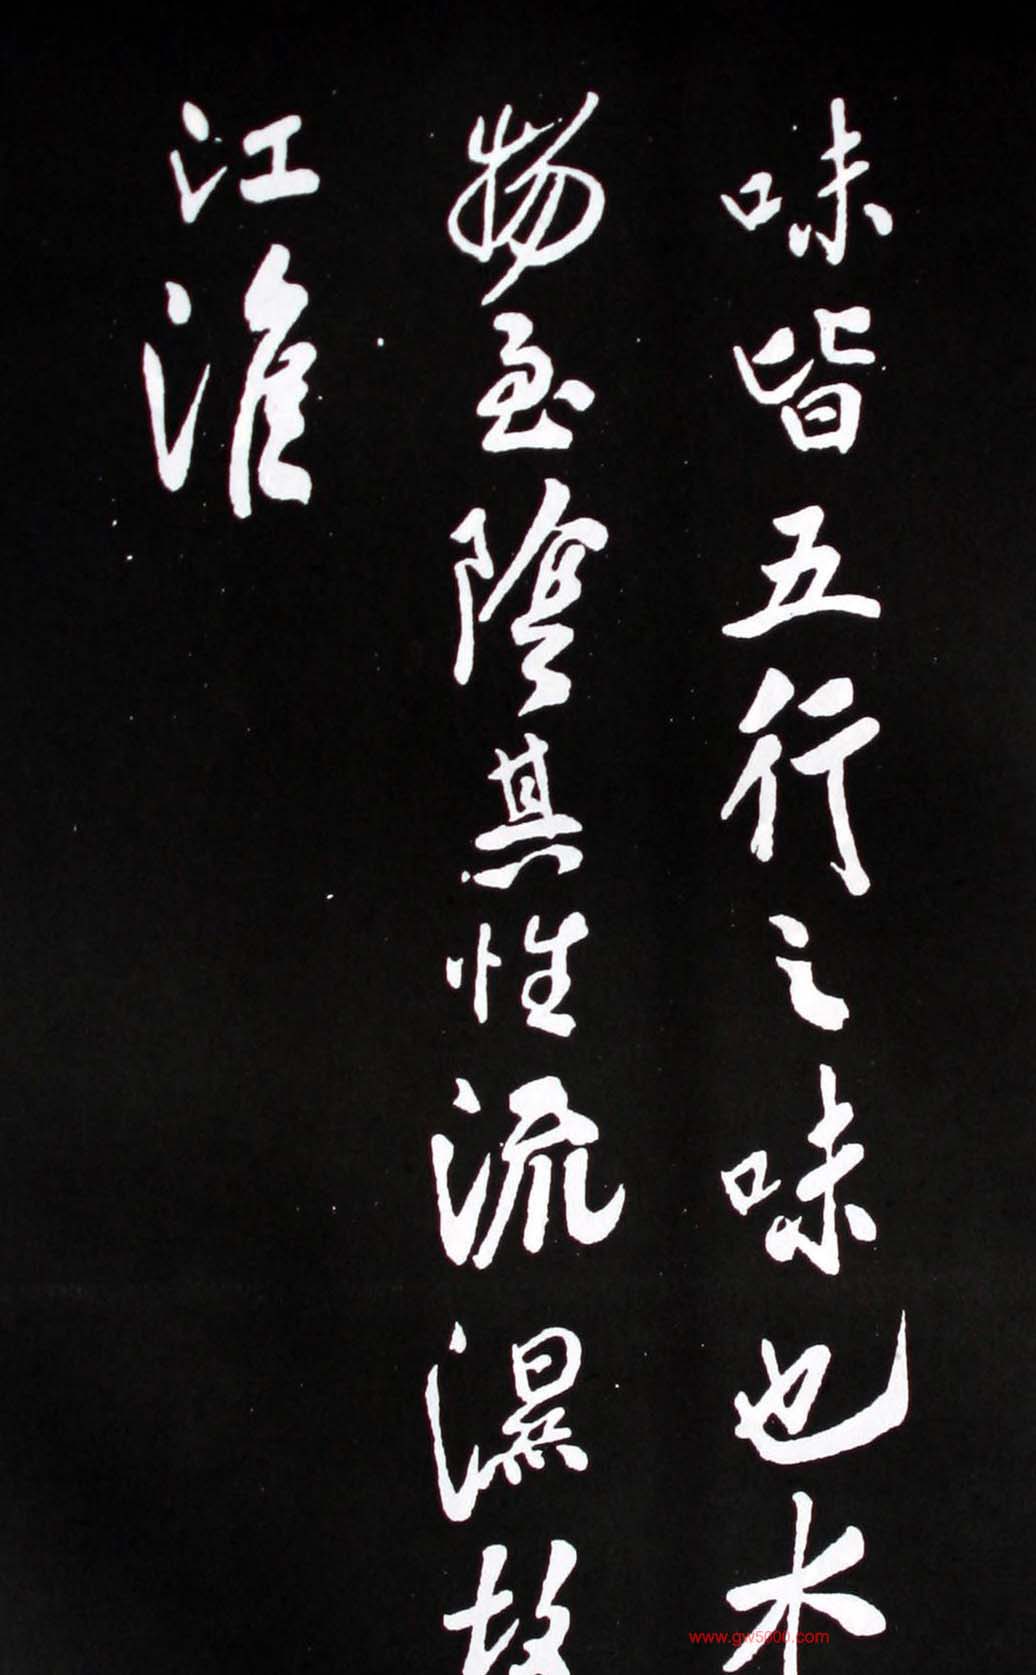 味皆五行之味也水
物至陰其性流濕故
江淮
www.gw5000.com